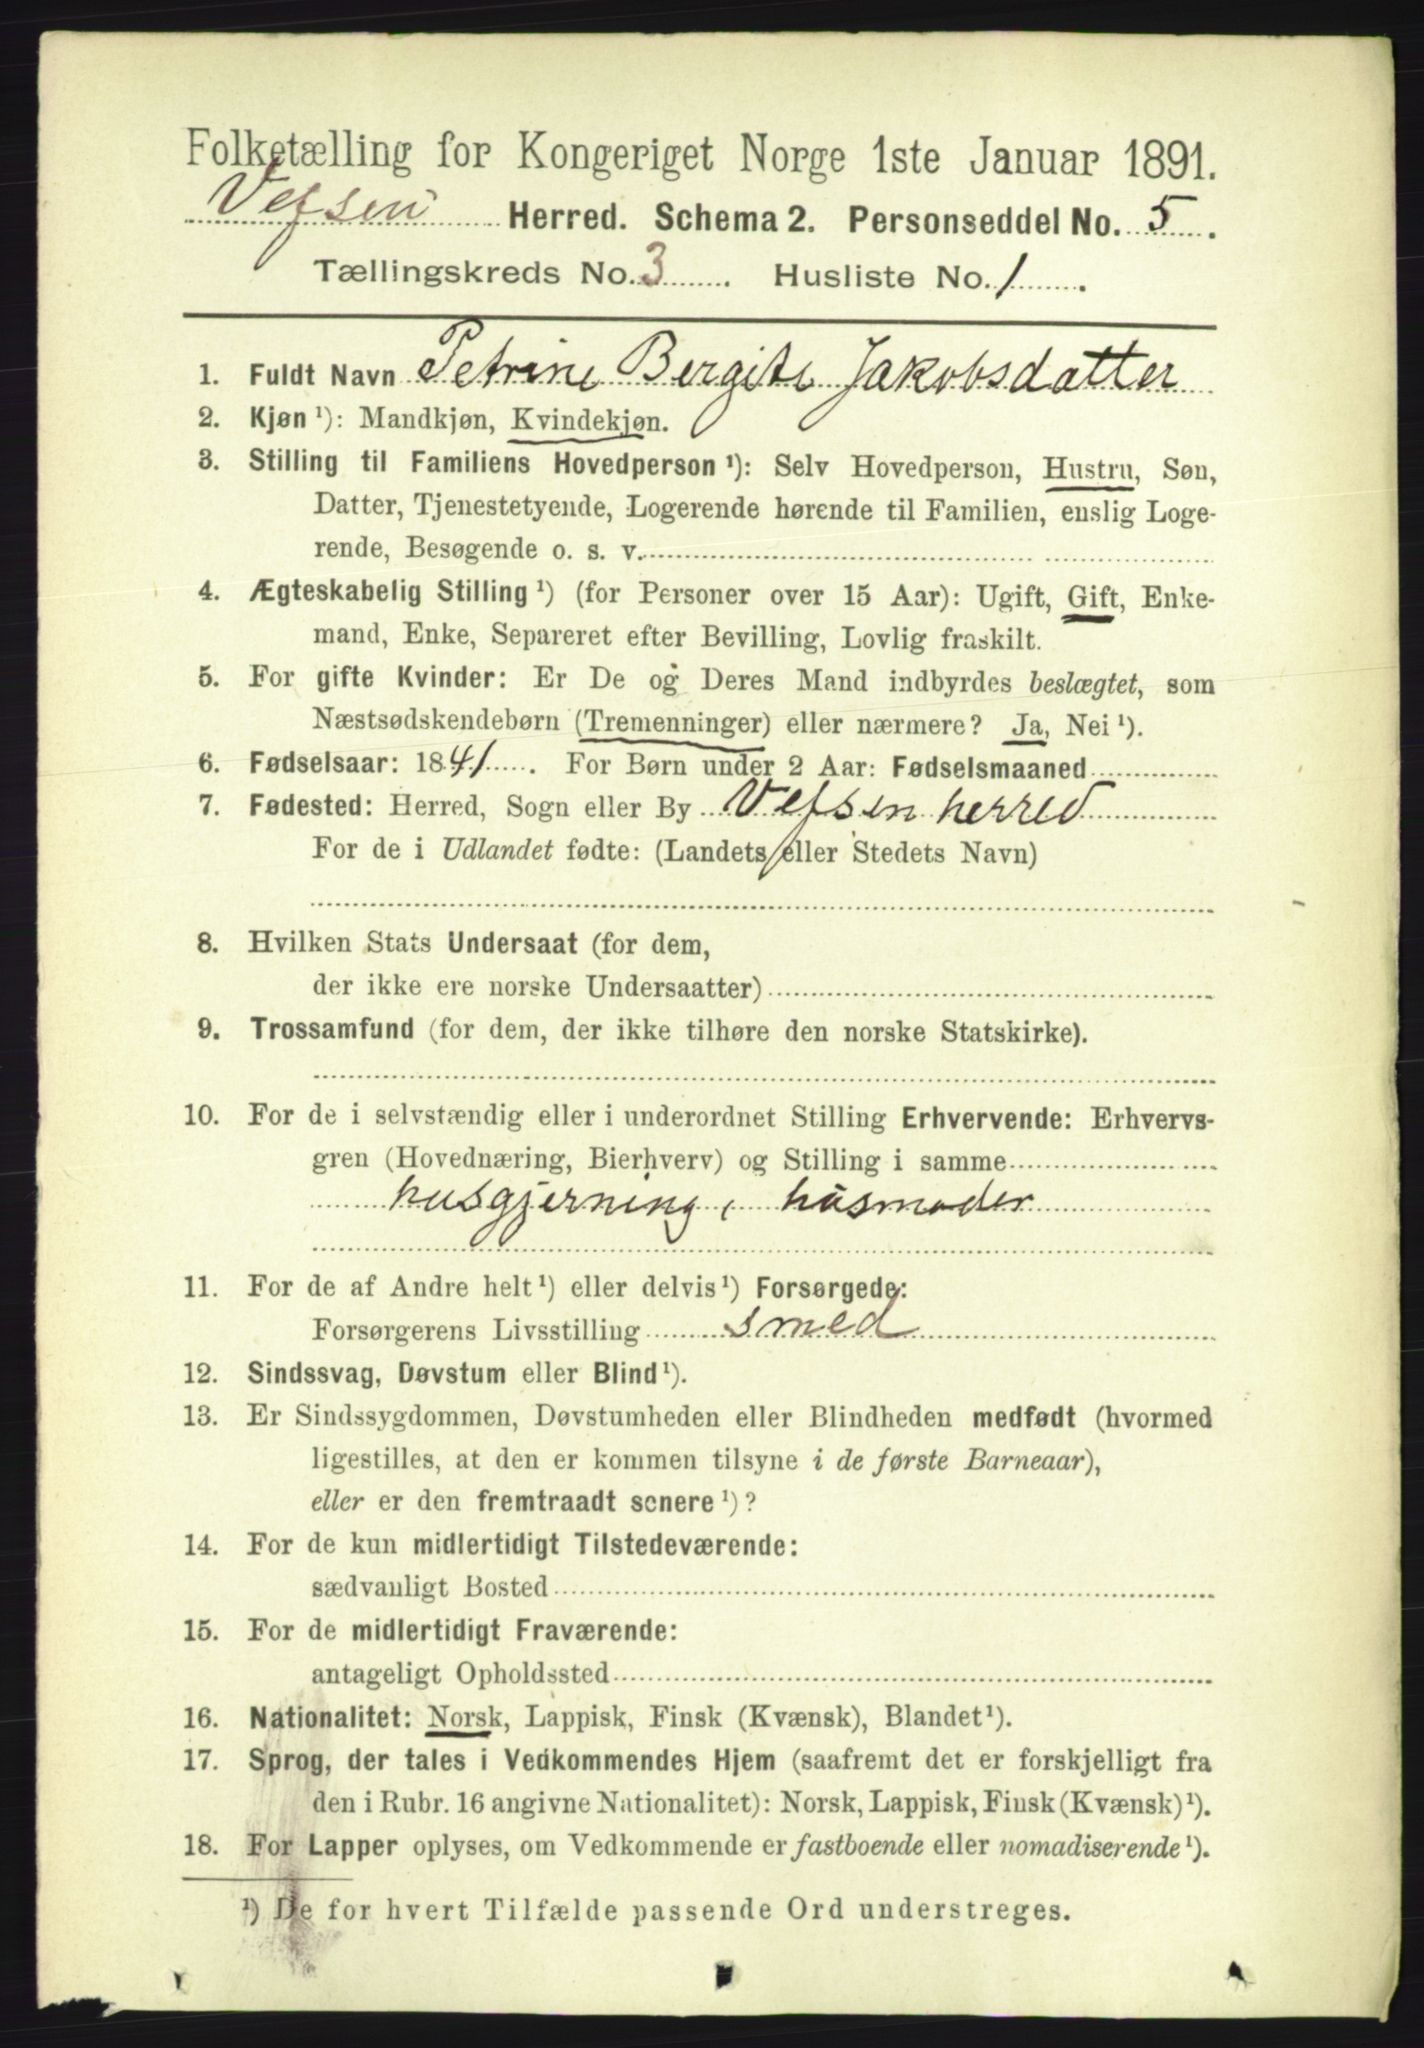 Folketælling for Kongeriget Norge 1ste Januar 1891.
Vefsen Herred. Schema 2. Personseddel No. 5.
Tællingskreds No. 3. Husliste No. 1.
1. Fuldt Navn Petrine Bergite Jakobsdatter
2. Kjøn ¹): Mandkjøn, Kvindekjøn.
3. Stilling til Familiens Hovedperson ¹): Selv Hovedperson, Hustru, Søn,
Datter, Tjenestetyende, Logerende hørende til Familien, enslig Loge-
rende, Besøgende o. s. v.
4. Ægteskabelig Stilling ¹) (for Personer over 15 Aar): Ugift, Gift, Enke-
mand, Enke, Separeret efter Bevilling, Lovlig fraskilt.
5. For gifte Kvinder: Er De og Deres Mand indbyrdes beslægtet, som
Næstsødskendebørn (Tremenninger) eller nærmere? Ja, Nei ¹).
6. Fødselsaar: 1841. For Børn under 2 Aar: Fødselsmaaned
7. Fødested: Herred, Sogn eller By Vefsen herred
For de i Udlandet fødte: (Landets eller Stedets Navn)
8. Hvilken Stats Undersaat (for dem,
der ikke ere norske Undersaatter)
9. Trossamfund (for dem, der ikke tilhøre den norske Statskirke).
10. For de i selvstændig eller i underordnet Stilling Erhvervende: Erhvervs-
gren (Hovednæring, Bierhverv) og Stilling i samme
husgjerning, husmoder
11. For de af Andre helt ¹) eller delvis ¹) Forsørgede:
Forsørgerens Livsstilling smed
12. Sindssvag, Døvstum eller Blind ¹).
13. Er Sindssygdommen, Døvstumheden eller Blindheden medfødt (hvormed
ligestilles, at den er kommen tilsyne i de første Barneaar),
eller er den fremtraadt senere ¹)?
14. For de kun midlertidigt Tilstedeværende:
sædvanligt Bosted
15. For de midlertidigt Fraværende:
antageligt Opholdssted
16. Nationalitet: Norsk, Lappisk, Finsk (Kvænsk), Blandet ¹).
17. Sprog, der tales i Vedkommendes Hjem (saafremt det er forskjelligt fra
den i Rubr. 16 angivne Nationalitet): Norsk, Lappisk, Finsk (Kvænsk) ¹).
18. For Lapper oplyses, om Vedkommende er fastboende eller nomadiserende ¹).
¹) De for hvert Tilfælde passende Ord understreges.